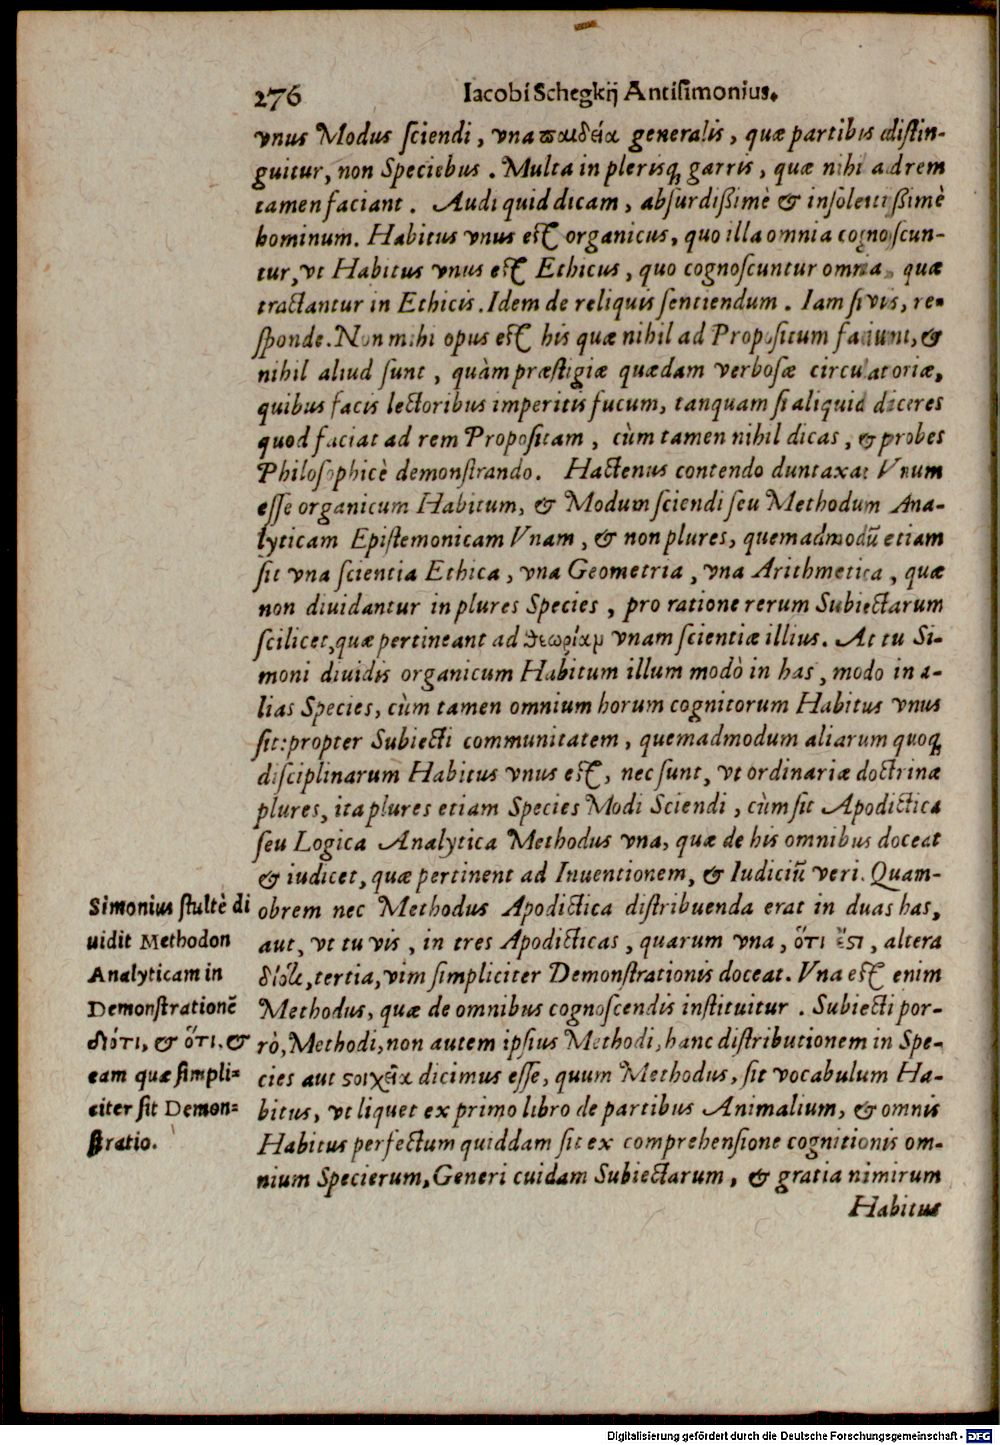 276 Iacobi Schegkij Antisimonius.
vnus Modus sciendi, vna παιδεία generalis, quæ partibus distin-
guitur, non Speciebus. Multa in plerisq́; garris, quæ nihil ad rem
tamen faciant. Audi quid dicam, absurdißimè & insolentißimè
hominum. Habitus vnus est organicus, quo illa omnia cognoscun-
tur, vt Habitus vnus est Ethicus, quo cognoscuntur omnia, quæ
tractantur in Ethicis. Idem de reliquis sentiendum. Iam si vis, re-
sponde. Non mihi opus est his quæ nihil ad Propositum faciunt, &
nihil aliud sunt, quàm præstigiæ quædam verbosæ circulatoriæ,
quibus facis lectoribus imperitis fucum, tanquam si aliquid diceres
quod faciat ad rem Propositam, cùm tamen nihil dicas, & probes
Philosophicè demonstrando. Hactenus contendo duntaxat Vnum
esse organicum Habitum, & Modum sciendi seu Methodum Ana-
lyticam Epistemonicam Vnam, & non plures, quemadmodũ etiam
sit vna scientia Ethica, vna Geometria, vna Arithmetica, quæ
non diuidantur in plures Species, pro ratione rerum Subiectarum
scilicet, quæ pertineant ad θεωρίαμ vnam scientiæ illius. At tu Si-
moni diuidis organicum Habitum illum modò in has, modo in a-
lias Species, cùm tamen omnium horum cognitorum Habitus vnus
sit: propter Subiecti communitatem, quemadmodum aliarum quoq́;
disciplinarum Habitus vnus est, nec sunt, vt ordinariæ doctrinæ
plures, ita plures etiam Species Modi Sciendi, cùm sit Apodictica
seu Logica Analytica Methodus vna, quæ de his omnibus doceat
& iudicet, quæ pertinent ad Inuentionem, & Iudiciũ veri. Quam-
obrem nec Methodus Apodictica distribuenda erat in duas has,
aut, vt tu vis, in tres Apodicticas, quarum vna, ὅτι ἔστι, altera
διότι, tertia, vim simpliciter Demonstrationis doceat. Vna est enim
Methodus, quæ de omnibus cognoscendis instituitur. Subiecti por-
rò, Methodi, non autem ipsius Methodi, hanc distributionem in Spe-
cies aut στοιχεῖα dicimus esse, quum Methodus, sit vocabulum Ha-
bitus, vt liquet ex primo libro de partibus Animalium, & omnis
Habitus perfectum quiddam sit ex comprehensione cognitionis om-
nium Specierum, Generi cuidam Subiectarum, & gratia nimirum
Habitus
Simonius stultè di
uidit Methodon
Analyticam in
Demonstrationẽ
διότι, & ὅτι, &
eam quæ simpli-
citer sit Demon-
stratio.
Digitalisierung gefördert durch die Deutsche Forschungsgemeinschaft - DFG